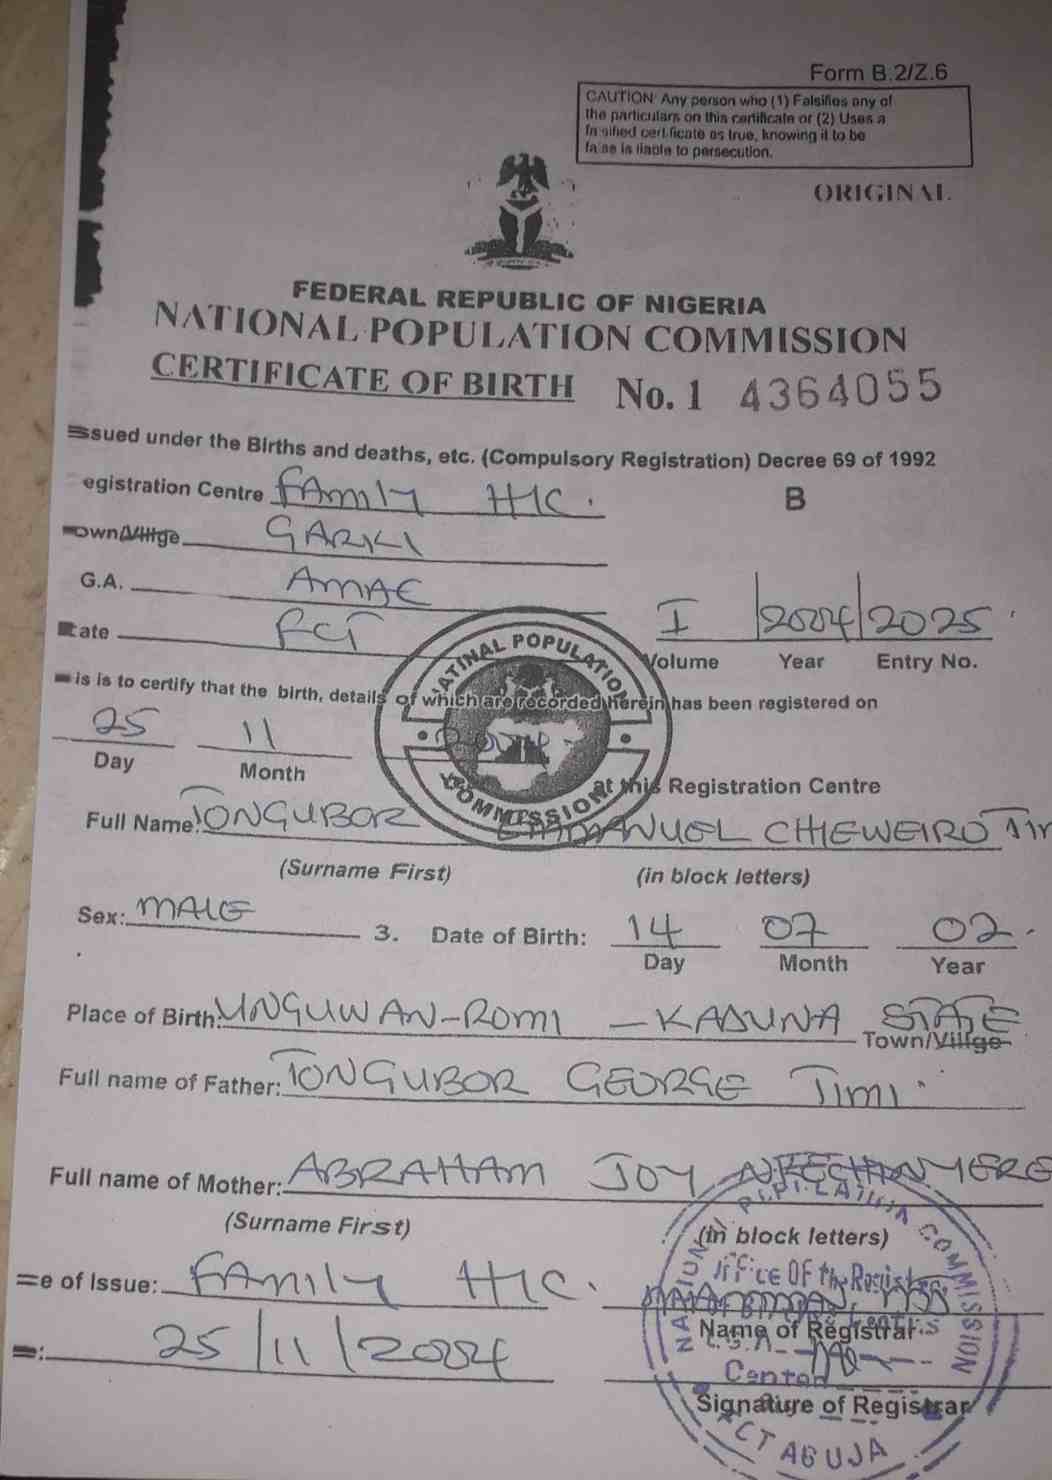 Form B.2/Z.6
CAUTION: Any person who (1) Falsifies any of
the particulars on this certificate or (2) Uses a
falsified certificate as true, knowing it to be
false is liable to persecution.
ORIGINAL
FEDERAL REPUBLIC OF NIGERIA
NATIONAL POPULATION COMMISSION
CERTIFICATE OF BIRTH No. 1 4364055
ssued under the Births and deaths, etc. (Compulsory Registration) Decree 69 of 1992
egistration Centre FAmily HIC.
B
own/Villge GARKI
G.A. AMAC
tate FCT
I 2004 2025
Volume Year Entry No.
NATINAL POPULATION
COMMISSION
is is to certify that the birth, details of which are recorded herein has been registered on
25 11
Day Month
at this Registration Centre
Full Name: TONGUBOR EMMANUEL CHIEWEIRO
(Surname First) (in block letters)
Sex: MALE 3. Date of Birth: 14 07 02.
Day Month Year
Place of Birth: UNGUWAN-ROMI - KADUNA STATE
Town/Villge
Full name of Father: TONGUBOR GEORGE Timi.
Full name of Mother: ABRAHAM JOY
(Surname First) (in block letters)
e of Issue: FAmily HIC.
25/11/2004
Name of Registrar
Signature of Registrar
NATIONAL POPULATION COMMISSION
Office OF the Registrar
FCT ABUJA